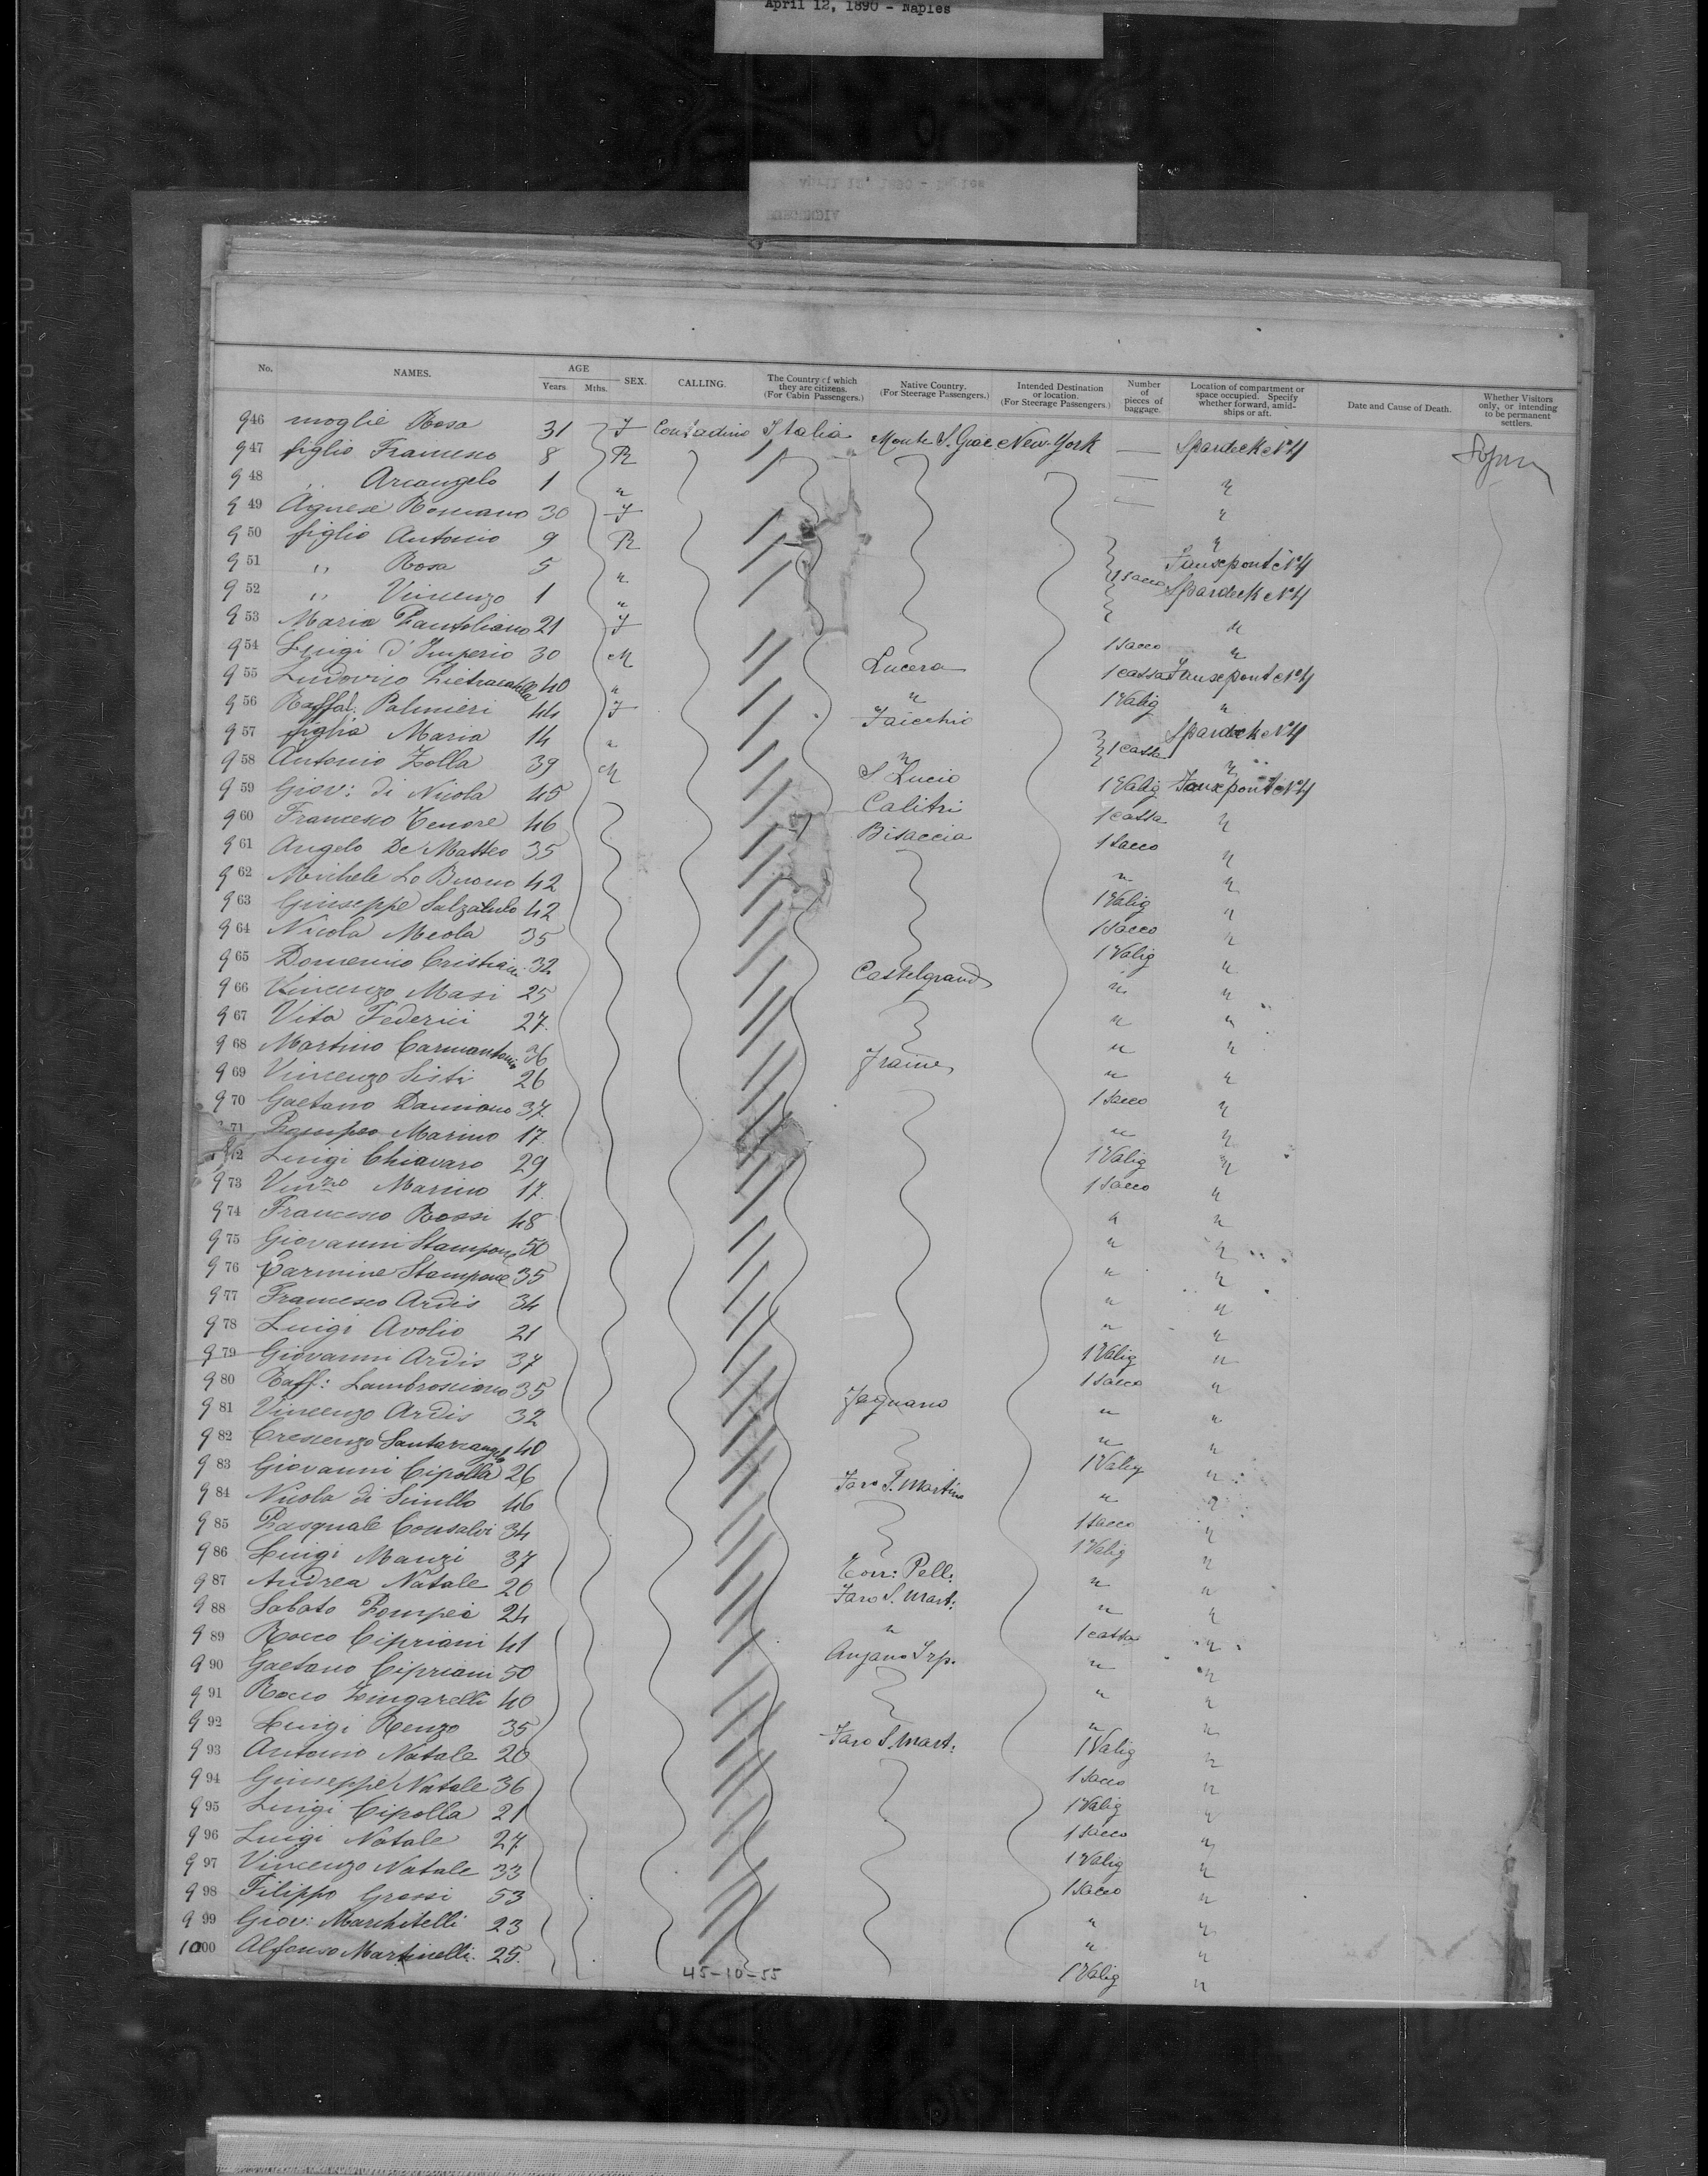 April 12, 1890 - Naples
No. NAMES. AGE Years. Mths. SEX. CALLING. The Country of which they are citizens. (For Cabin Passengers.) Native Country. (For Steerage Passengers.) Intended Destination or location. (For Steerage Passengers.) Number of pieces of baggage. Location of compartment or space occupied. Specify whether forward, amidships or aft. Date and Cause of Death. Whether Visitors only, or intending to be permanent settlers.
946 moglie Rosa 31 F Contadino Italia Monte S. Giac New-York — Spardeck N4
947 figlio Francesco 8 R — "
948 " Arcangelo 1 " — "
949 Agnese Romano 30 F "
950 figlio Antonio 9 R
951 " Rosa 5 " 1 sacco Spardeck N4
952 " Vincenzo 1 "
953 Maria Pantoliano 21 F "
954 Luigi d'Imperio 30 M Lucera 1 sacco "
955 Ludovico Pietracatella 40 " " 1 cassa
956 Raffal: Palmieri 44 F Faicchio 1 Valig "
957 figlia Maria 14 " " 1 cassa Spardeck N4
958 Antonio Zolla 39 M S Lucio "
959 Giov: di Nicola 45 Calitri 1 Valig
960 Francesco Tenore 46 Bisaccia 1 cassa "
961 Angelo De Matteo 35 1 sacco "
962 Michele Lo Buono 42 " "
963 Giuseppe 42 1 Valig "
964 Nicola Meola 35 1 sacco "
965 Domenico Cristiani 32 Castelgrande 1 Valig "
966 Vincenzo Masi 25 " "
967 Vito Federici 27 " "
968 Martino Carmantonio 36 Fraine " "
969 Vincenzo Sisti 26 " "
970 Gaetano Damiano 37 1 sacco "
971 Pompeo Marino 17 " "
972 Luigi Chiavaro 29 1 Valig "
973 Vinzo Marino 17 1 sacco "
974 Francesco Rossi 48 " "
975 Giovanni Stampone 50 " "
976 Carmine Stampone 35 " "
977 Francesco Ardis 34 " "
978 Luigi Avolio 21 " "
979 Giovanni Ardis 37 1 Valig "
980 Raff: Lambrosciano 35 1 sacco "
981 Vincenzo Ardis 32 " "
982 Crescenzo Santarcangelo 40 " "
983 Giovanni Cipolla 26 1 Valig "
984 Nicola di Scinllo 46 Faro S. Martino " "
985 Pasquale Consalvi 34 1 sacco "
986 Luigi Manzi 37 1 Valig "
987 Andrea Natale 26 Torr: Pell: " "
988 Sabato Pompei 24 Faro S. Mart: " "
989 Rocco Cipriani 41 " 1 cassa "
990 Gaetano Cipriani 50 " "
991 Rocco Zingarelli 40 " "
992 Luigi Renzo 35 " "
993 Antonio Natale 20 Faro S. Mart: 1 Valig "
994 Giuseppe Natale 36 1 sacco "
995 Luigi Cipolla 21 1 Valig "
996 Luigi Natale 27 1 sacco "
997 Vincenzo Natale 33 1 Valig "
998 Filippo Grossi 53 1 sacco "
999 Giov: Marchitelli 23 " "
1000 Alfonso Martinelli 25 " "
45-10-55 1 Valig "